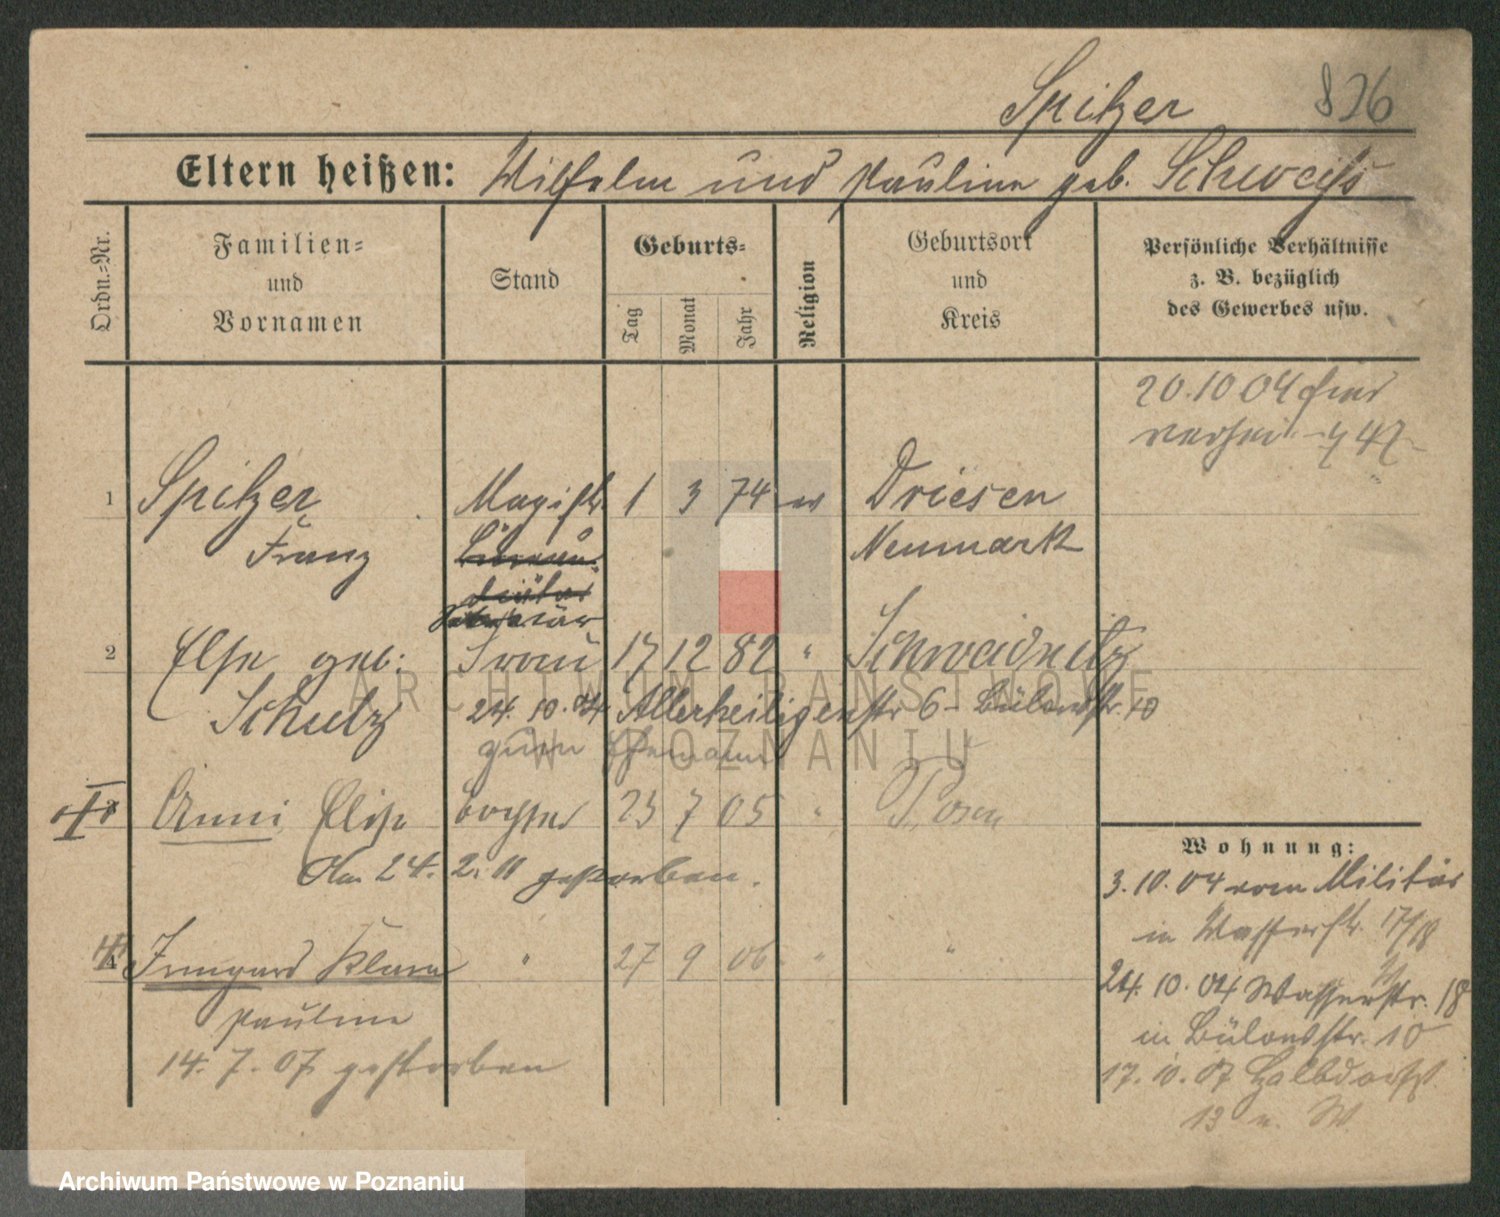 Spitzer 836
Eltern heißen: Wilhelm und Pauline geb. Schweiß
Ordn.-Nr.
Familien- und Vornamen
Stand
Geburts-
Tag
Monat
Jahr
Religion
Geburtsort und Kreis
Persönliche Verhältnisse z. B. bezüglich des Gewerbes usw.
20.10 04
47
1 Spitzer Magistr 1 3 74 ev Driesen
Franz Bureau- Neumark
diätar
2 Else geb: Frau 17 12 82 " Schweidnitz
Schulz 24. 10. 04 Allerheiligenstr 6 - Bülowstr. 10
zum Ehemann
Anni Elise Tochter 23 7 05 " Posen
Am 24. 2. 11 gestorben.
4 Irmgard Klara " 27 9 06 " "
Pauline
14. 7. 07 gestorben
Wohnung:
3. 10. 04 vom Militär
in Wasserstr. 17/18
24. 10. 04 Wasserstr. 18
in Bülowstr. 10
17. 10. 07 Halbdorfst.
13 n. W.
ARCHIWUM PAŃSTWOWE
W POZNANIU
Archiwum Państwowe w Poznaniu